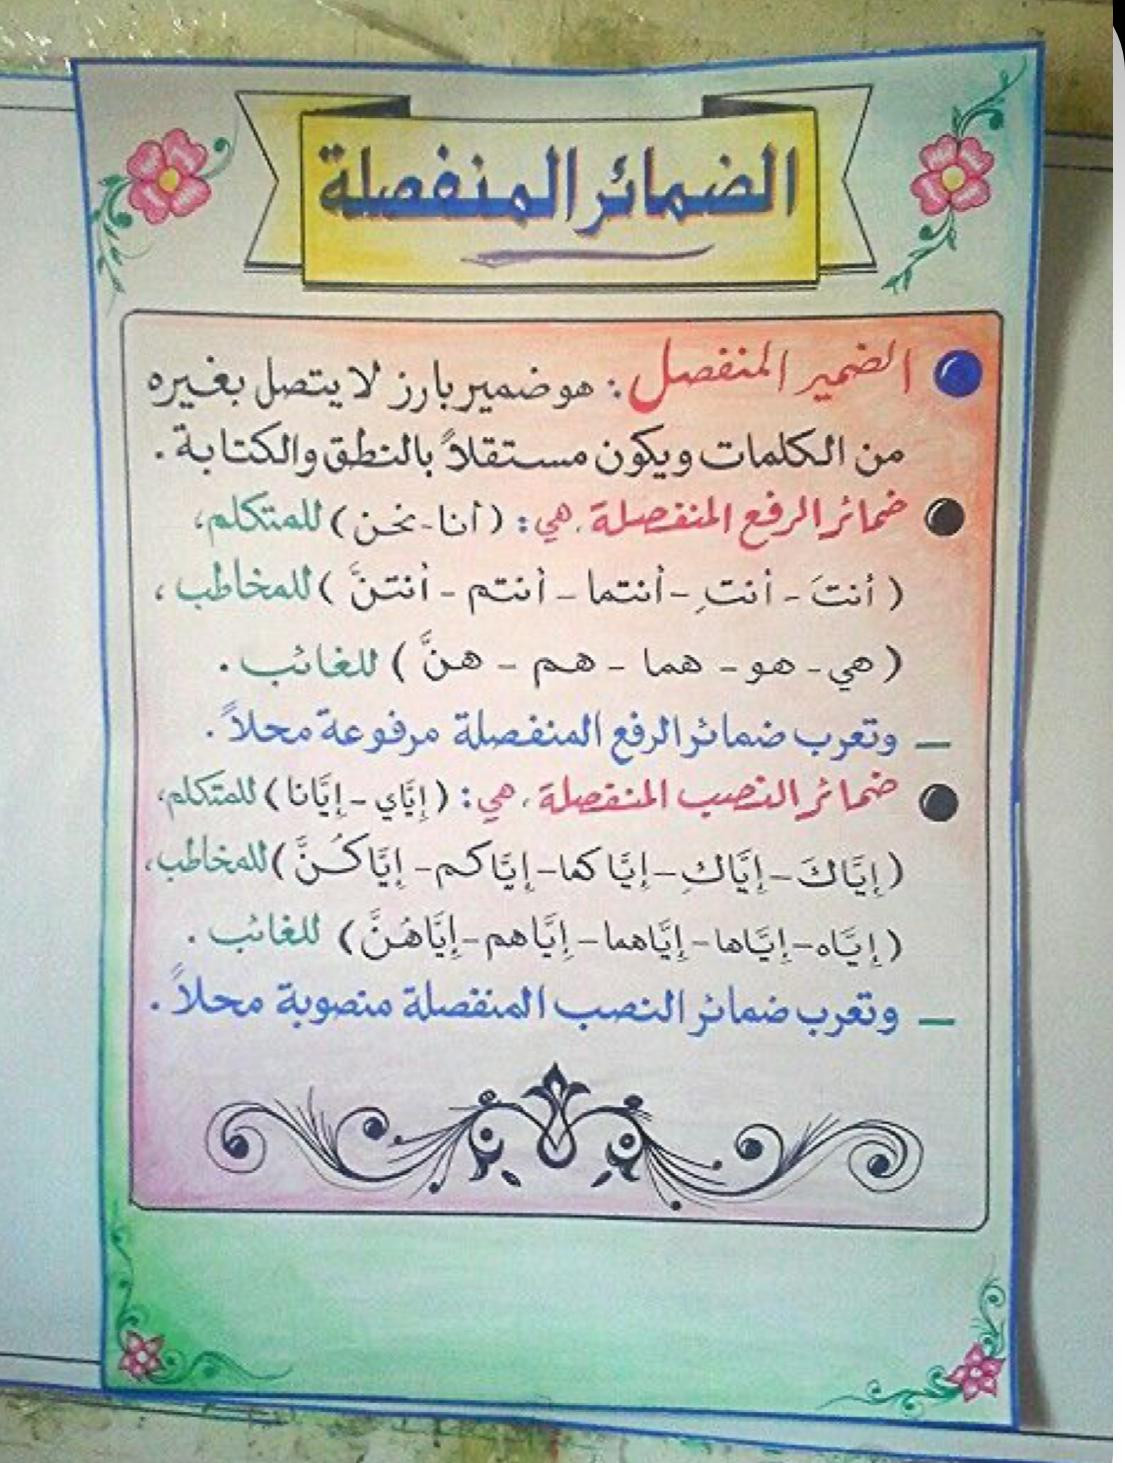 الضمائر المنفصلة
الضمير المنفصل : هو ضمير بارز لا يتصل بغيره
من الكلمات ويكون مستقلاً بالنطق والكتابة .
ضمائر الرفع المنفصلة ، هي : ( أنا - نحن ) للمتكلم ،
( أنتَ - أنتِ - أنتما - أنتم - أنتنَّ ) للمخاطب ،
( هي - هو - هما - هم - هنَّ ) للغائب .
– وتعرب ضمائر الرفع المنفصلة مرفوعة محلاً .
ضمائر النصب المنفصلة ، هي : ( إيَّاي - إيَّانا ) للمتكلم ،
( إيَّاكَ - إيَّاكِ - إيَّاكما - إيَّاكم - إيَّاكُنَّ ) للمخاطب ،
( إيَّاه - إيَّاها - إيَّاهما - إيَّاهم - إيَّاهُنَّ ) للغائب .
– وتعرب ضمائر النصب المنفصلة منصوبة محلاً .